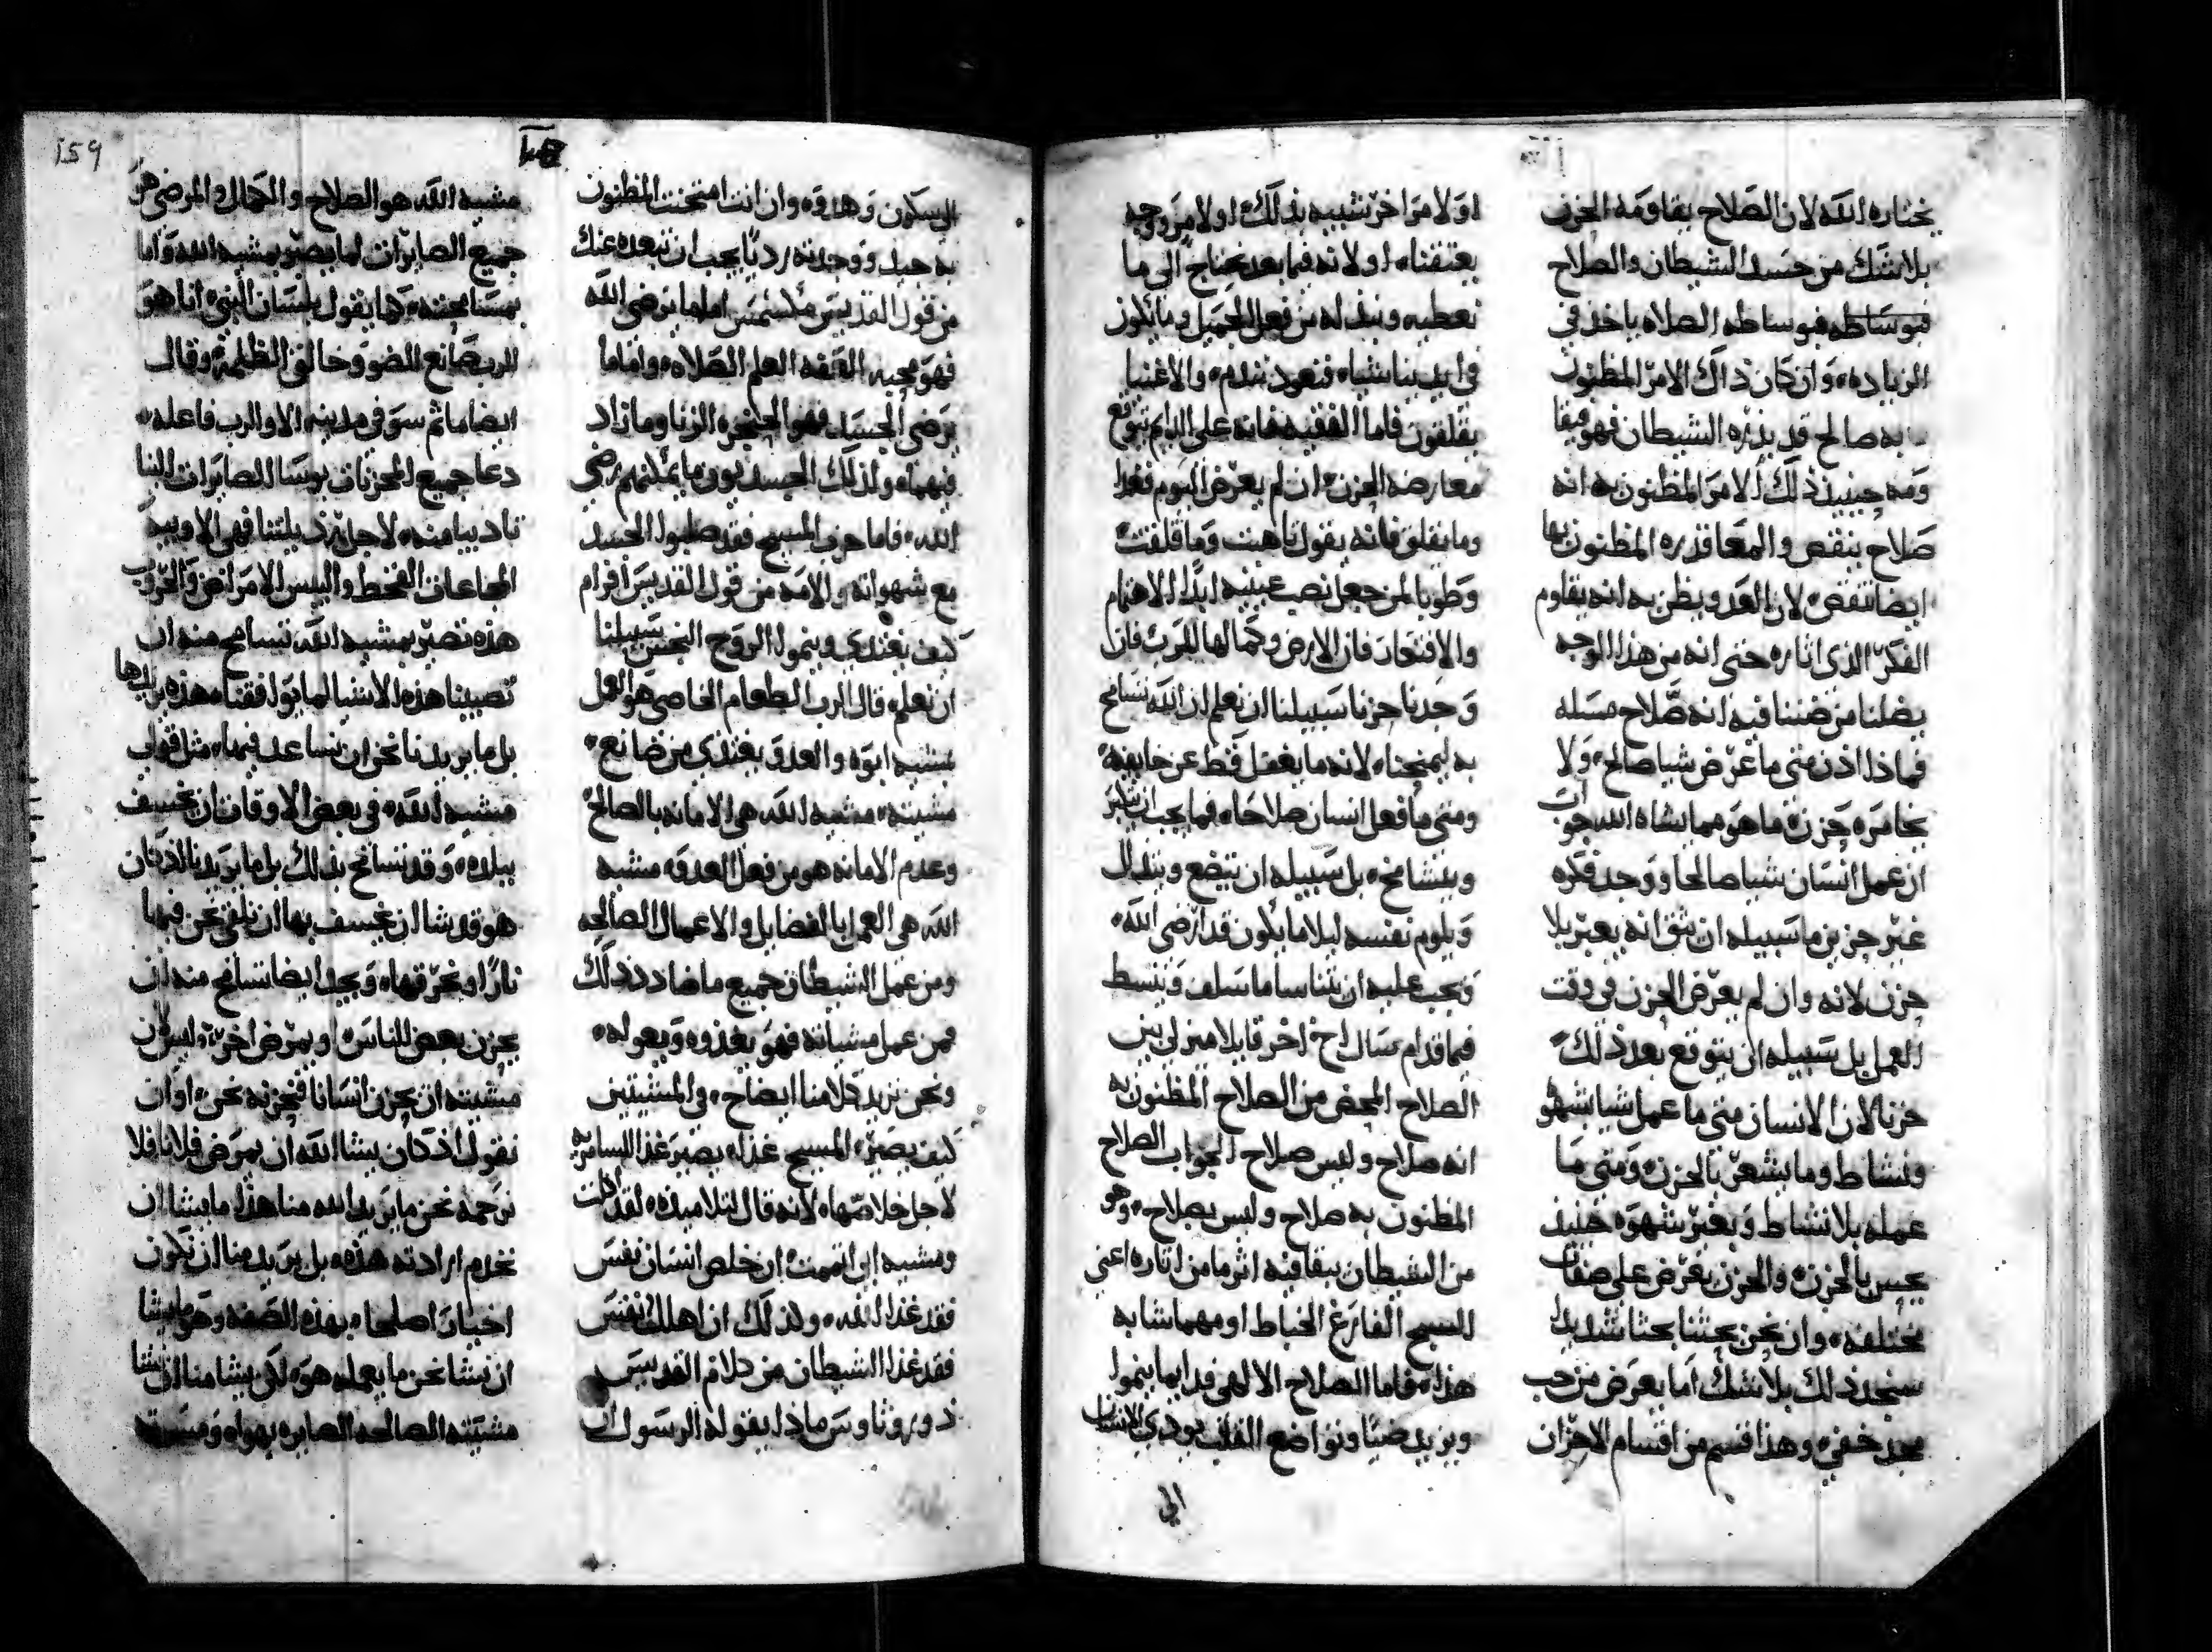 يختاره الله لان الصلاح يقاومه الحزن
بلا شك من حسد الشيطان والصلاح
فبوساطه فبوساطه الصلاه ياخذ في
الزياده وان كان ذاك الامر المظنون
به صالح قد بذره الشيطان فهو
ومه حينيذ ذلك الامر المظنون به انه
صلاح ينقص والمعاقده المظنون بها
ايضا تنقص لان العدو يظن به انه يقاوم
الفكر الذي اثاره حتى انه من هذا الوجه
يضلنا من ضننا فيه انه صلاح مسله
فماذا اذن متى ما عرض شيا صالح ولا
يخامره حزن ما هو مما يشاه الله جواب
ان عمل انسان شيا صالحا ووجد فكره
غير حزين ما سبيله ان يثق انه يعبر بلا
حزن لانه وان لم يعرض الحزن في وقت
العمل بل سبيله ان يتوقع بعد ذلك
حزنا لان الانسان متى ما عمل شيا بشهوه
ونشاط وما يشعر بالحزن ومتى ما
عمله بلا نشاط وبغير شهوه حنيذ
يحس بالحزن والحزن يعرض على صفات
مختلفه وان نحن بحثنا بحثا شديدا
سنجد ذلك بلا شك اما يعرض من حب
مجد خفي وهذا قسم من اقسام الاحزان
او لامر اخر شبيه بذلك او لامر وجه
يعتقنا او لانه فيما بعد نحتاج الى ما
نعطيه ونبذله من فعل الجميل وما يكون
في ايدينا شياء فنعود نندم والاغنيا
يقلقون فاما الفقيه فانه على الدايم يتوقع
معارضه الحزن ان لم يعرض اليوم فغدا
وما يقلق فانه يقول تاهبت وما قلقت
وطوبا لمن جعل نصب عينيه ابدا الاهتمام
والافتتحار فان الارض وكمالها للرب فان
وجدنا حزنا سبيلنا ان نعلم ان الله تسامح
به ليمتحنا لانه ما يغفل قط عن خايفيه
ومتى ما فعل انسان صلاحا فما يجب ان يتكبر
ويتشامخ بل سبيله ان يتضع ويتذلل
ويلوم نفسه ليلا ما يكون قد ارضى الله
ويجب عليه ان يتناسا ما سلف وينبسط
فيما قدام سال اخ اخر قايلا ميز لي بين
الصلاح المحض من الصلاح المظنون به
انه صلاح وليس صلاح الجواب الصلاح
المظنون به صلاح وليس بصلاح وهو
من الشيطان اثر ما من اثاره اعني
المسيح الفارغ الخياط او مهما شابه
هذا فاما الصلاح الالهي فدايما ينموا
ويزيد ضياء وتواضع القلب يودي الانسان
الى
159
الي السكون وهدوه وان انت امتحنت المظنون
به جيد ووجدته رديا يجب ان تبعده عنك
من قول القديس مكسيمس اما ما يرضي الله
فهو محبه العفه العلم الصلاه واما ما
يرضي الجسد فهو الحنجره الزنا وما زاد
فيهما ولذلك الجسديون ما يمكنهم رضى
الله فاما حزب المسيح فقد صلبوا الجسد
مع شهواته والامه من قول القديس افرام
كيف يغتدي وينموا الروح النجس سبيلنا
ان نعلم قال الرب الطعام الخاصي هو العمل
بمشيه ابوه والعدو يغتذي من صانع
مشيته مشيه الله هي الامانه بالصالح
وعدم الامانه هو من فعل العدو مشيه
الله هي العمل بالفضايل والاعمال الصالحه
ومن عمل الشيطان جميع ما ضادد ذلك
فمن عمل مشياته فهو يغذوه ويعوله
ونحن نزيد كلامنا ايضاح في المشيتين
كيف يصير المسيح غذاء يصير غذا للسامريه
لاجل خلاصها لانه قال لتلاميذه لقد اكلت
ومشيه ابي اتممت ان خلص انسان نفس
فقد غذا الله ولذلك ان اهلك نفس
فقد غذا الشيطان من كلام القديس
دوروثاوس ماذا يقوله الرسول ان
مشيه الله هو الصلاح والكمال والمرضي هو
جميع الصايرات لما يصير بمشيه الله واما
بمسامحته كما يقول بلسان النبي انا هو
الرب صانع الضو وخالق الظلمه وقال
ايضا ما ثم سو في مدينه الا والرب فاعله
دعا جميع المحزنات بوسا الصايرات الينا
تاديبا منه لاجل رذيلتنا فهي الاوبيه
المجاعات القحط واليبس الامراض والحروب
هذه تصير بمشيه الله تسامح منه ان
تصيبنا هذه الاشيا لما يوافقنا هذه يريدها
بل ما يريدنا نحن ان نساعد فيها مثل قولي
مشيه الله في بعض الاوقات ان يخسف
ببلده وقد تسامح بذلك بل ما يريدنا اذ كان
هو قد شا ان يخسف بها ان نلقي نحن فيها
نارا ونحرقها ويجد ايضا تسامح منه ان
يحزن بعض الناس او يمرض اخر وليس لان
مشيته ان يحزن انسانا فنحزنه نحن او ان
نقول اذ كان يشا الله ان يمرض فلانا فلا
نرحمه نحن ما يريد الله منا هذا ما يشا ان
نخدم ارادته هذه بل يريد منا ان نكون
اخيارا صلحا بهذه الصفه وهو ما يشا
ان نشا نحن ما يعمله هو لكن يشا منا ان نشا
مشيته الصالحه الصايره بهواه ومسرته